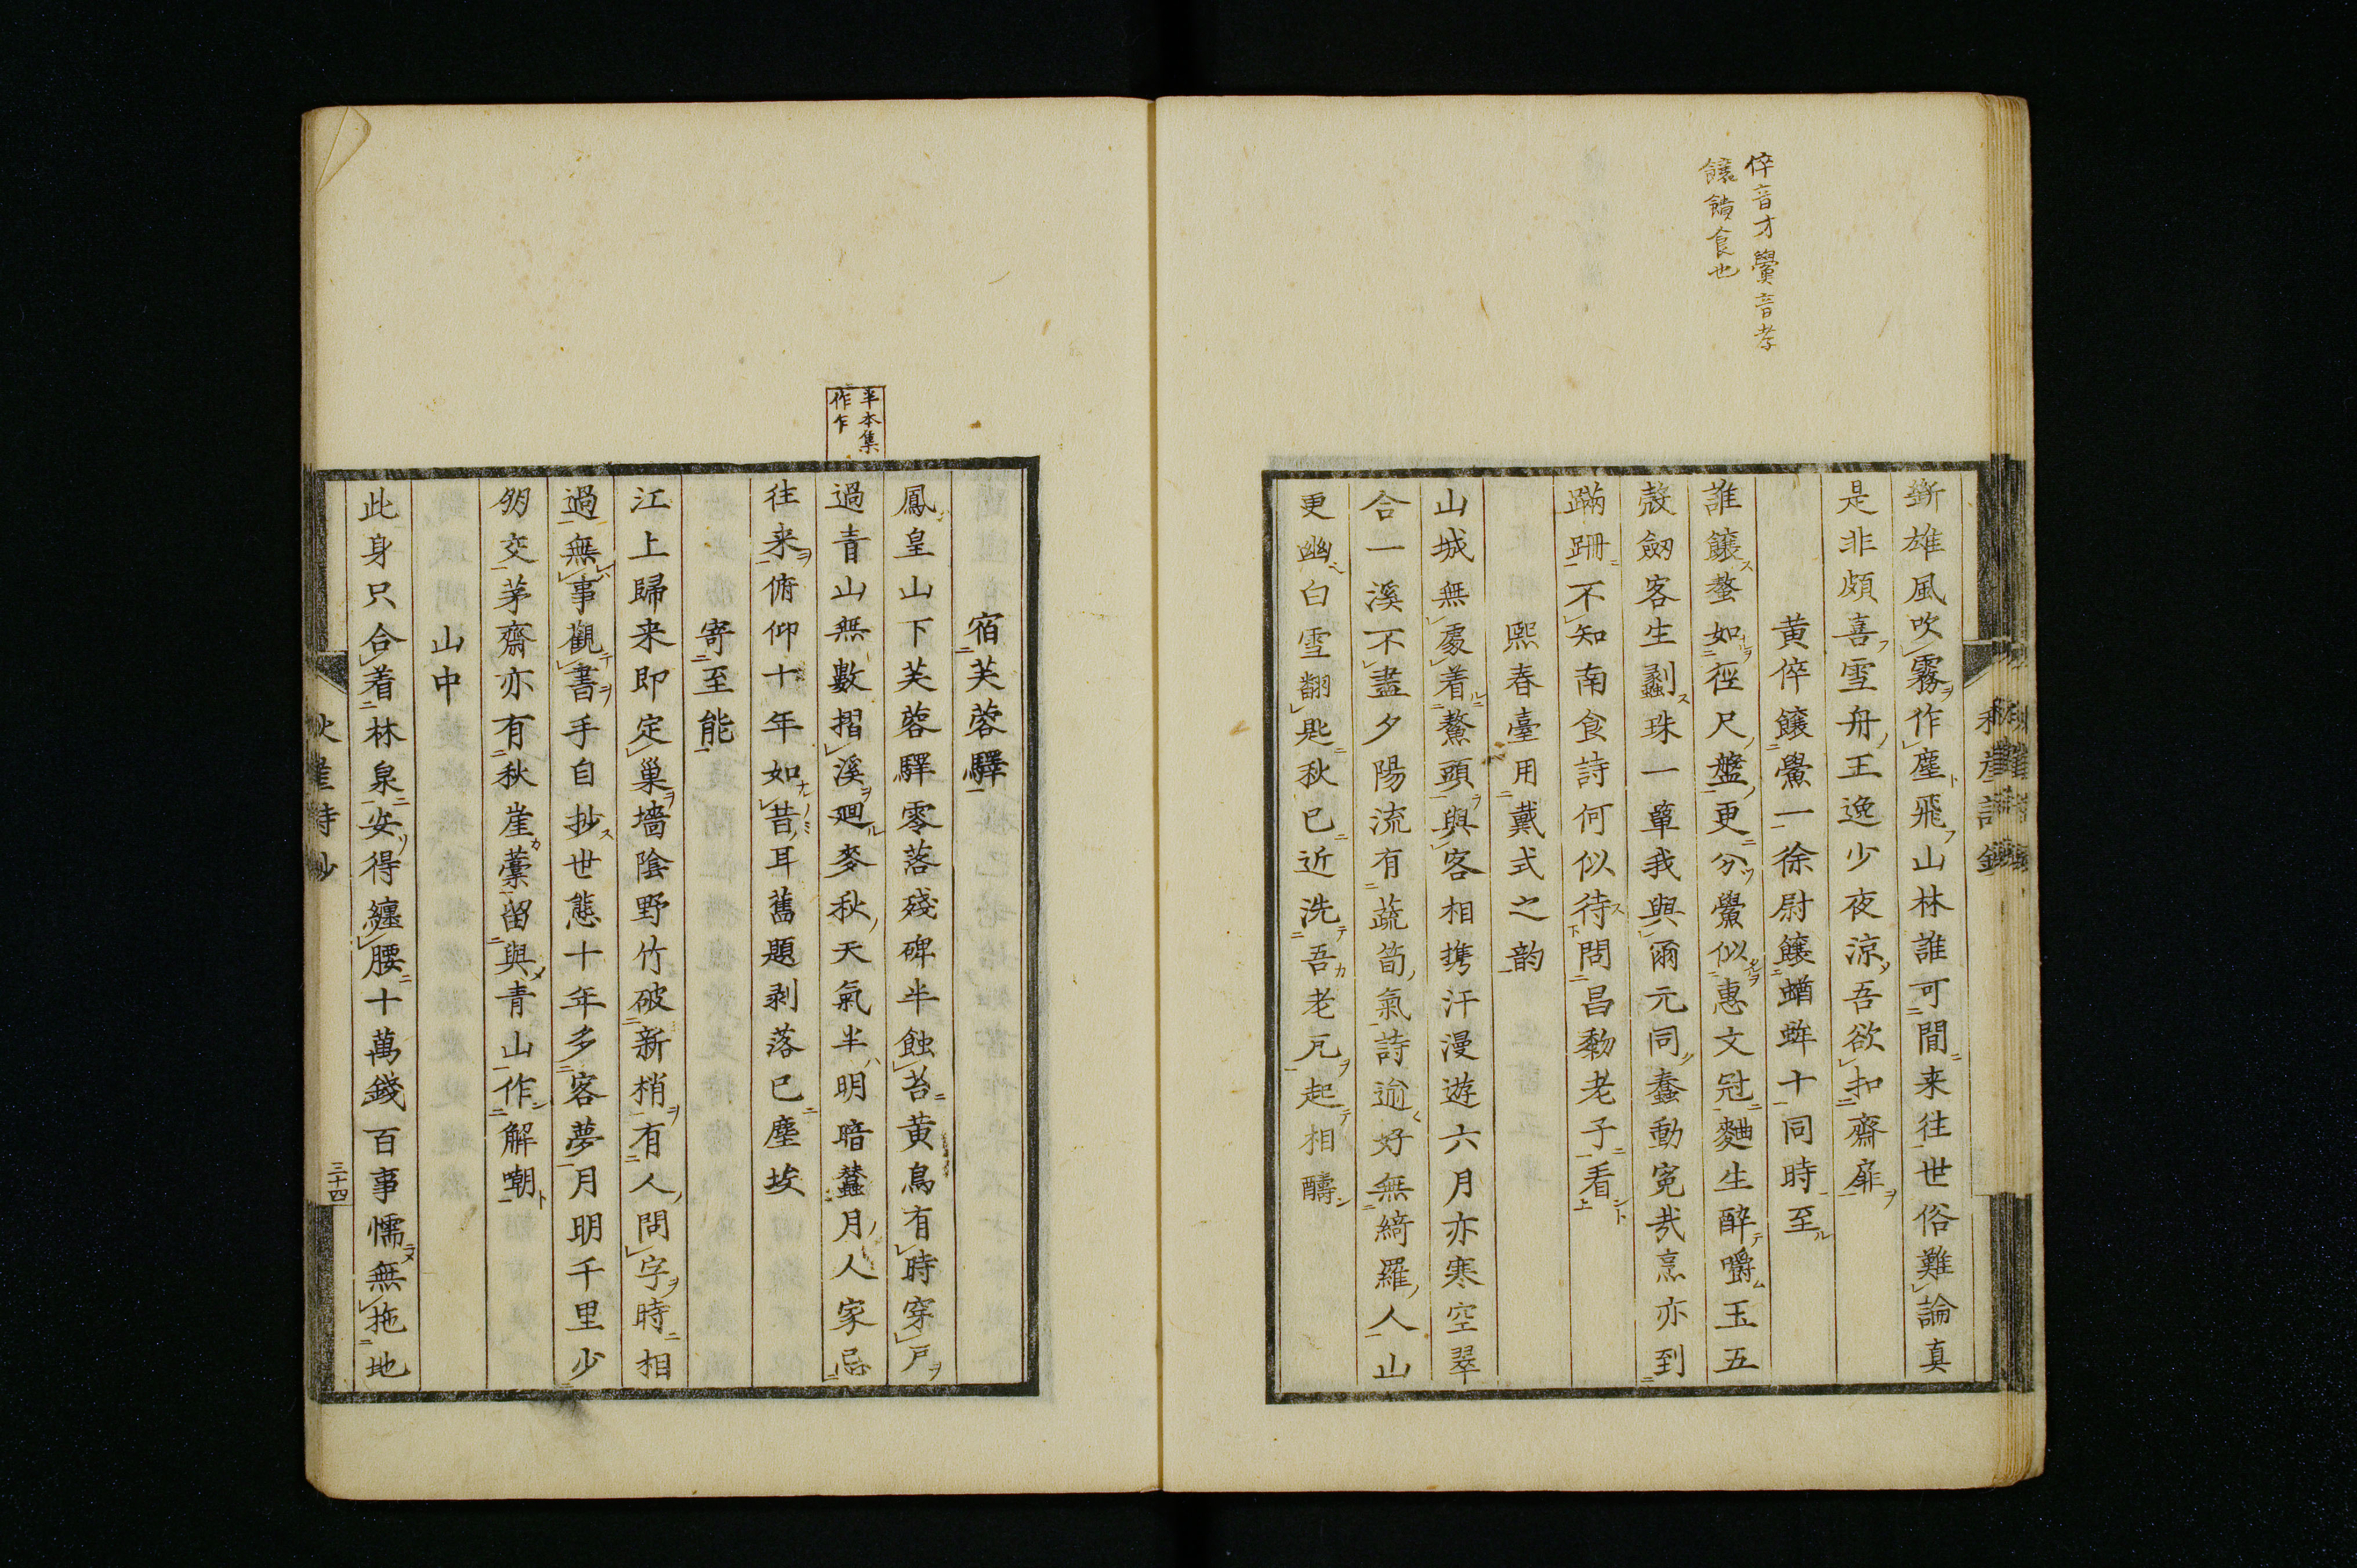 倅音才鱟音孝
饟饋食也
嶄雄風吹霧作塵飛山林誰可間来往世俗難論真
是非頗喜雪舟王逸少夜涼吾欲扣齋扉
黄倅饟鱟一徐尉饟蝤蛑十同時至
誰饟螯如徑尺盤更分鱟似惠文冠麯生醉嚼玉五
殼劔客生劙珠一簞我與爾元同蠢動寃哉烹亦到
蹣跚不知南食詩何似待問昌黎老子看
熙春臺用戴式之韵
山城無處着鰲頭與客相携汗漫遊六月亦寒空翠
合一溪不盡夕陽流有蔬筍氣詩逾好無綺羅人山
更幽白雪翻匙秋已近洗吾老瓦起相醻
半本集
作乍
宿芙蓉驛
鳳皇山下芙蓉驛零落殘碑半蝕苔黄鳥有時穿戸
過青山無數摺溪廻麥秋天氣半明暗蠶月人家忌
往来俯仰十年如昔耳舊題剥落已塵埃
寄至能
江上歸来即定巢墻陰野竹破新梢有人問字時相
過無事觀書手自抄世態十年多客夢月明千里少
朋交茅齋亦有秋崖藁留與青山作解嘲
山中
此身只合着林泉安得纏腰十萬錢百事懦無拖地
秋崖詩抄
三十四